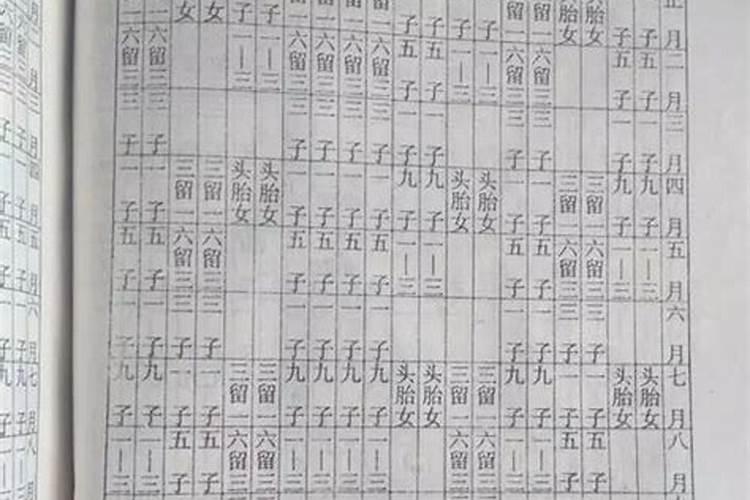 月二月三月四月五月六月七月八月
子五子一子九子一｜三头胎女
子五子一子九子一｜三头胎女
胎女三留一六留三三子一子五子
胎女三留一六留三三子一子五子
留一六留三三子一子五子一子九子一｜三
留一六留三三子一子五子一子九子一｜三
子一｜三头胎女三留一六留三
子一｜三头胎女三留一六留三
子五子一子九子一｜三头胎女
子五子一子九子一｜三头胎女
一六留三三子一子五子一子九子一｜三
一六留三三子一子五子一子九子一｜三
一六留三三子一子五子一子九子一｜三
一六留三三子一子五子一子九子一｜三
子一｜三头胎女三留一六留三
子一｜三头胎女三留一六留三
女三留一六留三三子一子五子
女三留一六留三三子一子五子
一六留三三子一子五子一子九子一｜三
一六留三三子一子五子一子九子一｜三